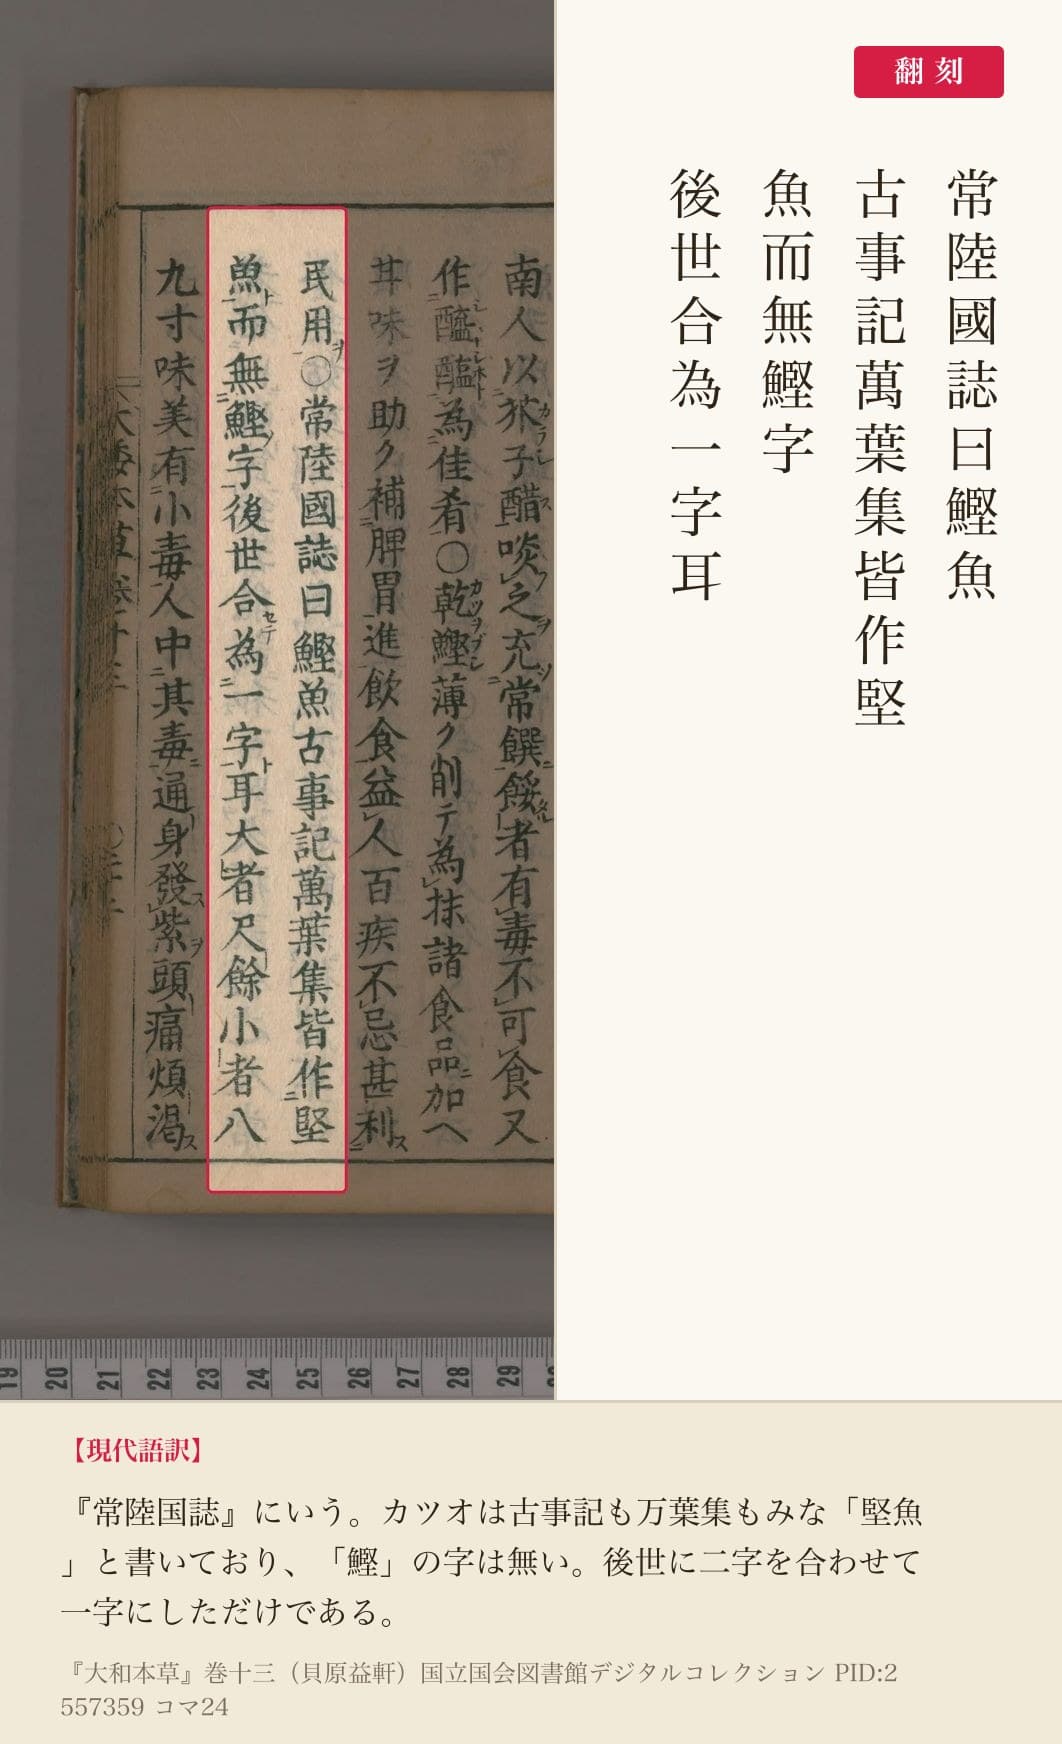 南人以芥子醋啖之充常饌餒者有毒不可食又
作醢醢為佳肴〇乾鰹薄ク削テ為抹諸食品加ヘ
其味ヲ助ク補脾胃進飲食益人百疾不忌甚利
民用〇常陸國誌曰鰹魚古事記萬葉集皆作堅
魚而無鰹字後世合為一字耳大者尺餘小者八
九寸味美有小毒人中其毒通身發紫頭痛煩渇
大倭本草卷十三
19 20 21 22 23 24 25 26 27 28 29
翻刻
常陸國誌曰鰹魚
古事記萬葉集皆作堅
魚而無鰹字
後世合為一字耳
【現代語訳】
『常陸国誌』にいう。カツオは古事記も万葉集もみな「堅魚
」と書いており、「鰹」の字は無い。後世に二字を合わせて
一字にしただけである。
『大和本草』巻十三（貝原益軒）国立国会図書館デジタルコレクション PID:2
557359 コマ24